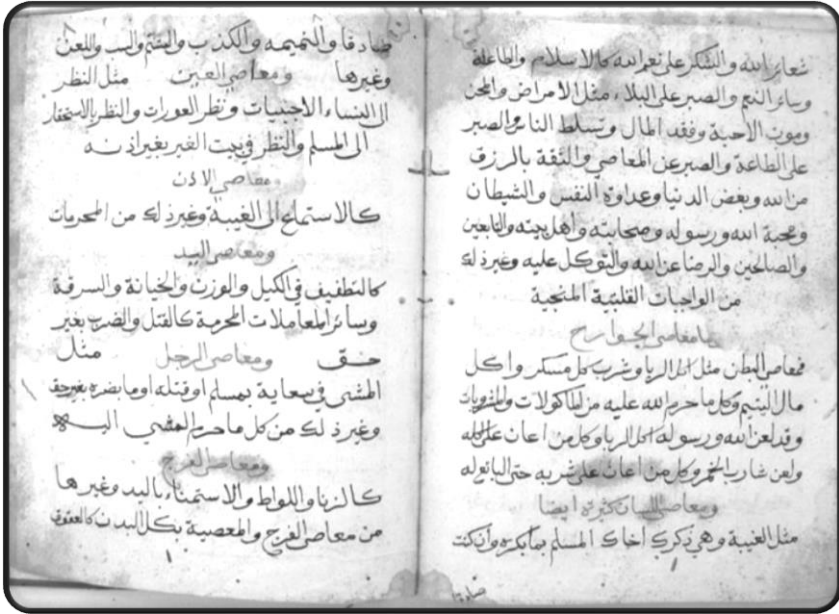 شعائر الله والشكر على نعم الله كالاسلام والطاعة
وسائر النعم والصبر على البلاء مثل الامراض والمحن
وموت الاحبة وفقد المال وتسلط الناس والصبر
على الطاعة والصبر عن المعاصي والثقة بالرزق
من الله وبغض الدنيا وعداوة النفس والشيطان
ومحبة الله ورسوله وصحابته واهل بيته والتابعين
والصالحين والرضا عن الله والتوكل عليه وغير ذلك
من الواجبات القلبية المنجية
معاصي الجوارح
فمعاصي البطن مثل اكل الربا وشرب كل مسكر واكل
مال اليتيم وكل ما حرم الله عليه من المأكولات والمشروبات
وقد لعن الله ورسوله اكل الربا وكل من اعان على اكله
ولعن شارب الخمر وكل من اعان على شربه حتى البائع له
ومعاصي اللسان كثيرة ايضا
مثل الغيبة وهي ذكرك اخاك المسلم بما يكره وان كنت
صادقا والنميمه والكذب والشتم والسب واللعن
وغيرها ومعاصي العين مثل النظر
الى النساء الاجنبيات ونظر العورات والنظر بالاستحقار
الى المسلم والنظر في بيت الغير بغير اذنه
ومعاصي الاذن
كالاستماع الى الغيبة وغير ذلك من المحرمات
ومعاصي اليد
كالتطفيف في الكيل والوزن والخيانة والسرقة
وسائر المعاملات المحرمة كالقتل والضرب بغير
حق ومعاصي الرجل مثل
المشي في سعاية بمسلم او قتله او ما يضره بغير حق
وغير ذلك من كل ما حرم المشي اليه
ومعاصي الفرج
كالزنا واللواط والاستمناء باليد وغيرها
من معاصي الفرج والمعصية بكل البدن كالعقوق